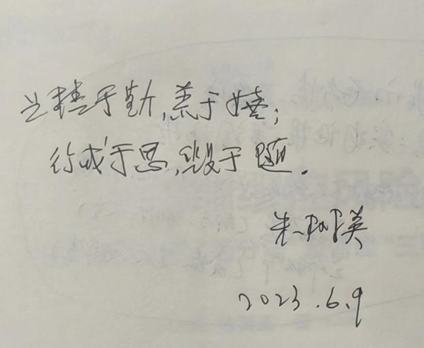 业精于勤,荒于嬉;
行成于思,毁于随.
2023.6.9